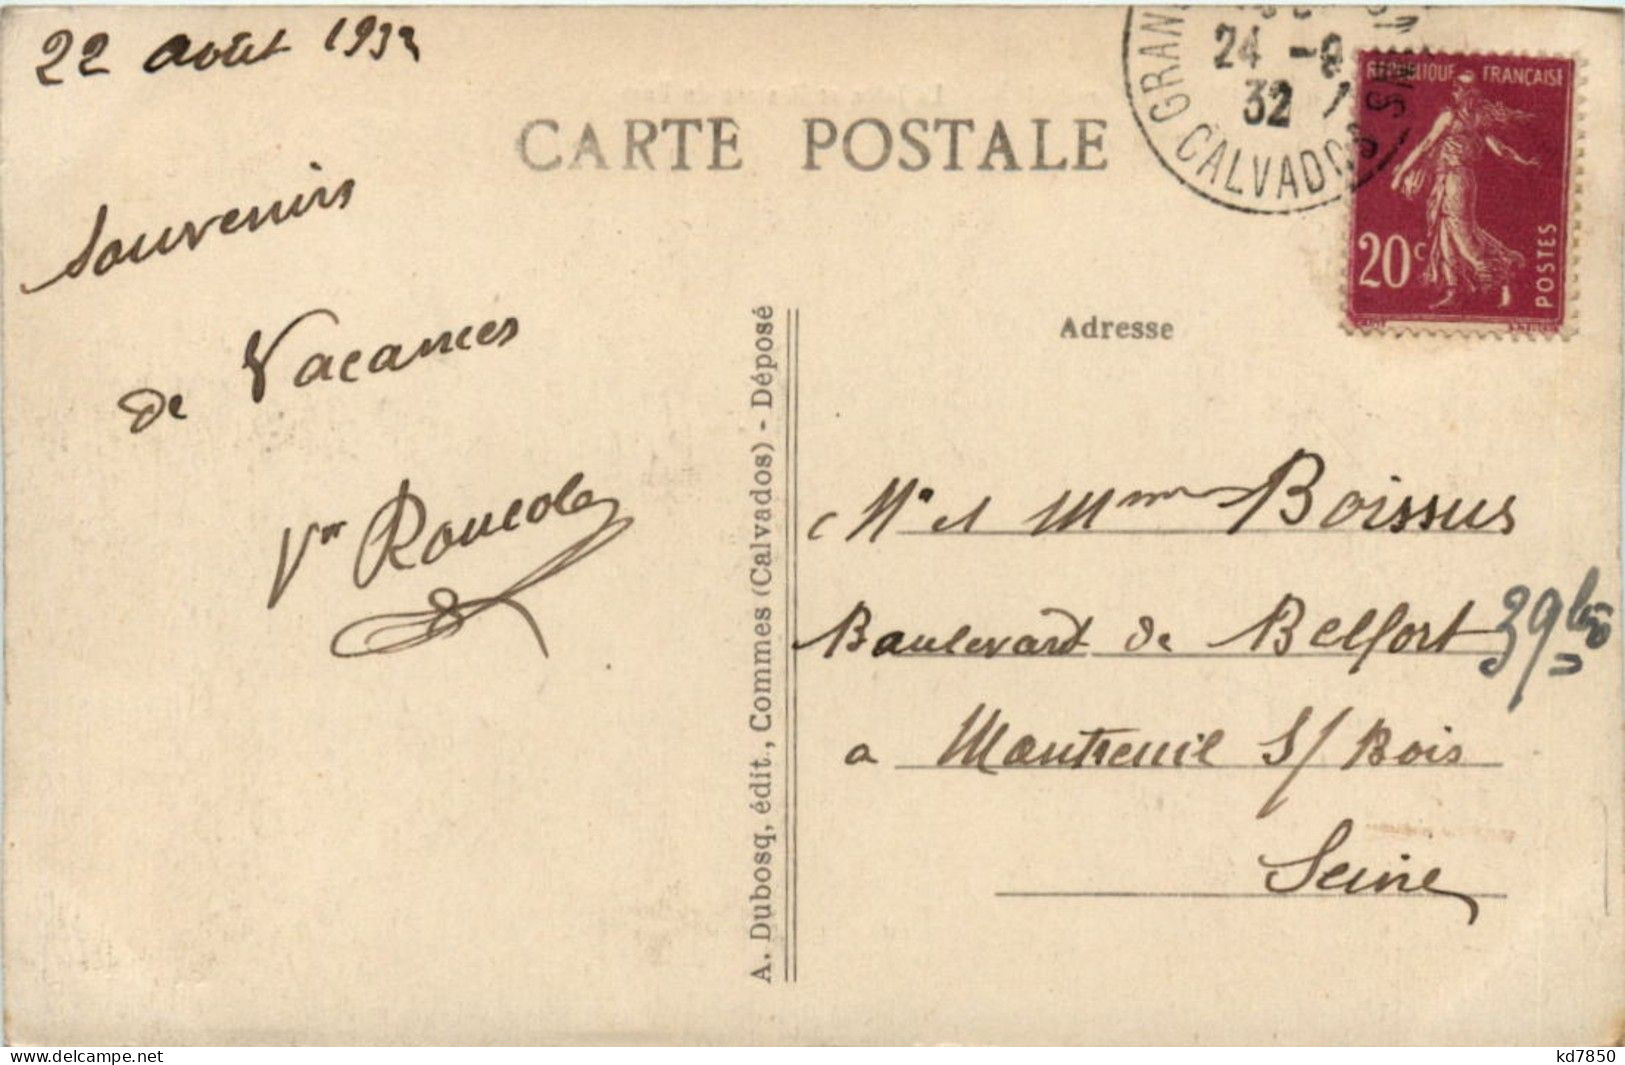 22 août 1932
CARTE POSTALE
GRAN
CALVADOS
24 -8
32
REPUBLIQUE FRANÇAISE
20c
POSTES
Souvenirs
de Vacances
Adresse
A. Dubosq, édit., Commes (Calvados) - Déposé
Mr et Mme Boissus
Boulevard de Belfort 39bis
a Montreuil S/ Bois
Seine
www.delcampe.net
kd7850